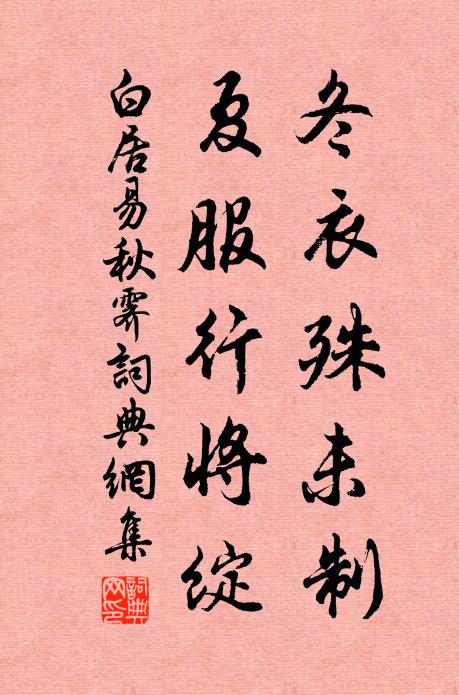 冬衣殊未制
夏服行将綻
白居易秋霽詞典網集
詞典網印